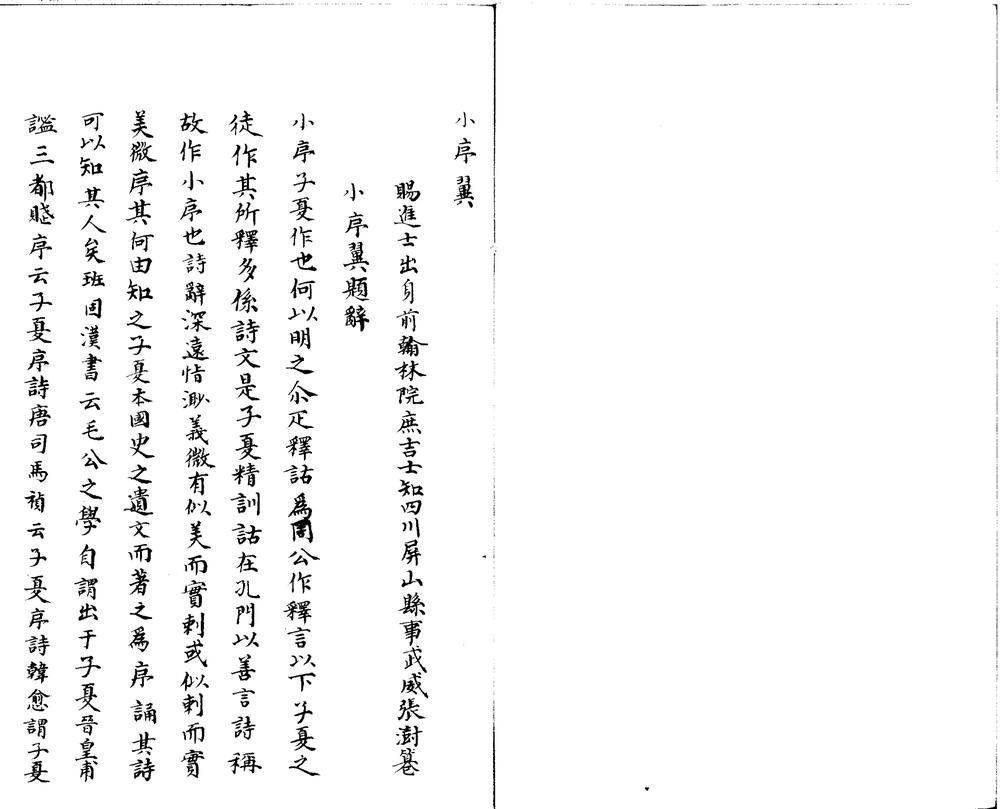 小序翼
賜進士出身前翰林院庶吉士知四川屏山縣事武威張澍纂
小序翼題辭
小序子夏作也何以明之尒疋釋詁爲周公作釋言以下子夏之
徒作其所釋多係詩文是子夏精訓詁在孔門以善言詩稱
故作小序也詩辭深遠情渺義微有似美而實刺或似刺而實
美微序其何由知之子夏本國史之遺文而著之爲序誦其詩
可以知其人矣班固漢書云毛公之學自謂出于子夏晉皇甫
謐三都賤序云子夏序詩唐司馬禎云子夏序詩韓愈謂子夏